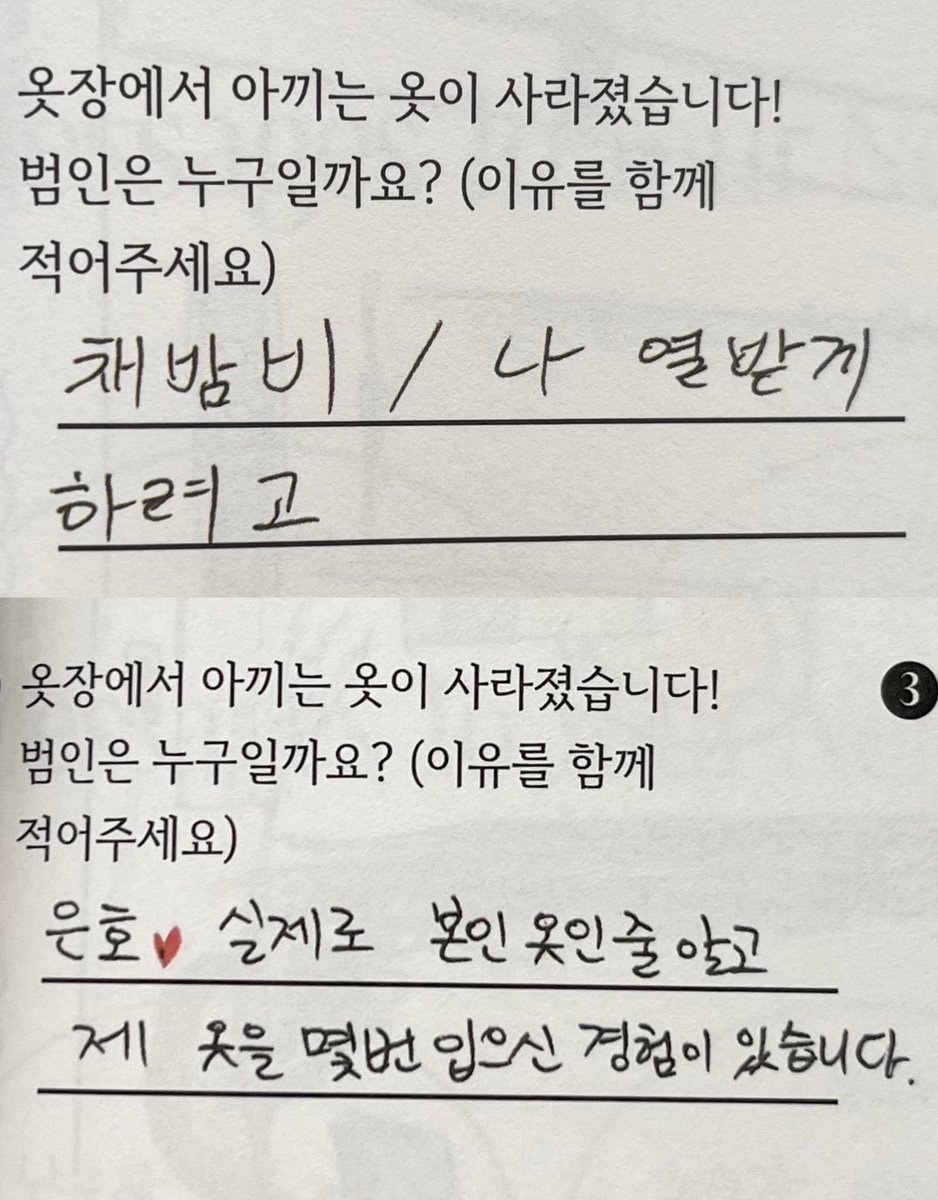 옷장에서 아끼는 옷이 사라졌습니다!
범인은 누구일까요? (이유를 함께
적어주세요)
채밤비 / 나 열받게
하려고
옷장에서 아끼는 옷이 사라졌습니다!
3
범인은 누구일까요? (이유를 함께
적어주세요)
은호 실제로 본인 옷인 줄 알고
제 옷을 몇번 입으신 경험이 있습니다.